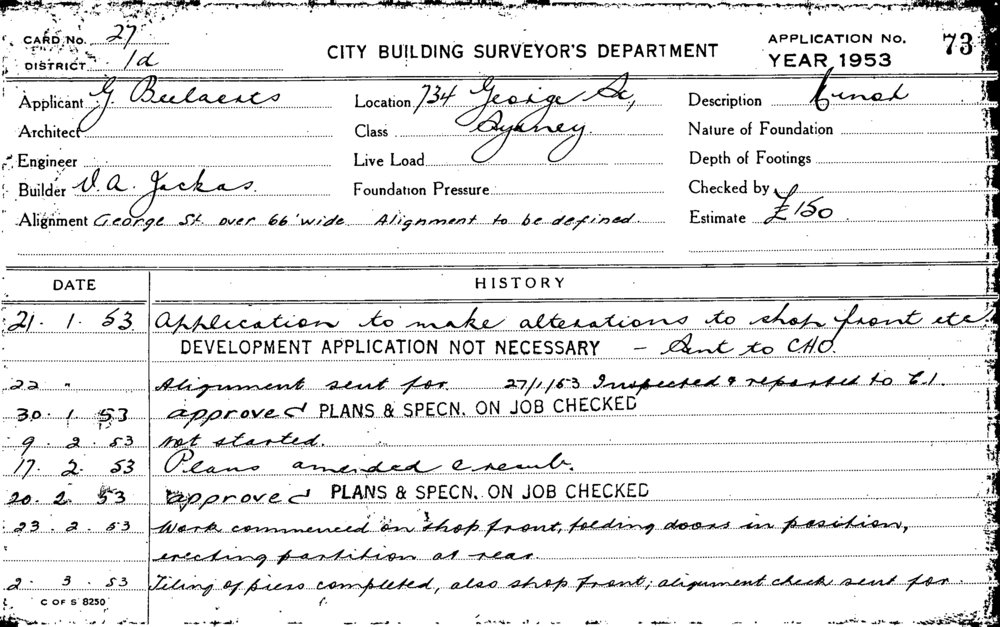 CARD No. 27
DISTRICT 1d
CITY BUILDING SURVEYOR'S DEPARTMENT
APPLICATION No. 73
YEAR 1953
Applicant G. Beelaerts
Location 734 George St,
Sydney.
Description
Architect
Class
Nature of Foundation
Engineer
Live Load
Depth of Footings
Builder V. A. Jackas.
Foundation Pressure
Checked by
Alignment George St. over 66' wide. Alignment to be defined
Estimate £150
DATE HISTORY
21. 1. 53 Application to make alterations to shop front etc.
DEVELOPMENT APPLICATION NOT NECESSARY – Sent to CHO.
22 " Alignment sent for. 27/1/53 Inspected & reported to C.I.
30. 1. 53 approved PLANS & SPECN. ON JOB CHECKED
9. 2. 53 Not started.
17. 2. 53 Plans amended & resub.
20. 2. 53 approved PLANS & SPECN. ON JOB CHECKED
23. 2. 53 Work commenced on shop front, folding doors in position,
erecting partition at rear.
2. 3. 53 Tiling of piers completed, also shop front; alignment check sent for.
C OF S 8250